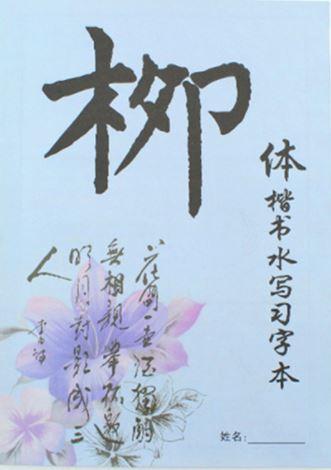 柳
体楷书水写习字本
花间一壶酒獨酌
無相親舉杯邀
明月對影成三
人
李白诗
姓名:________